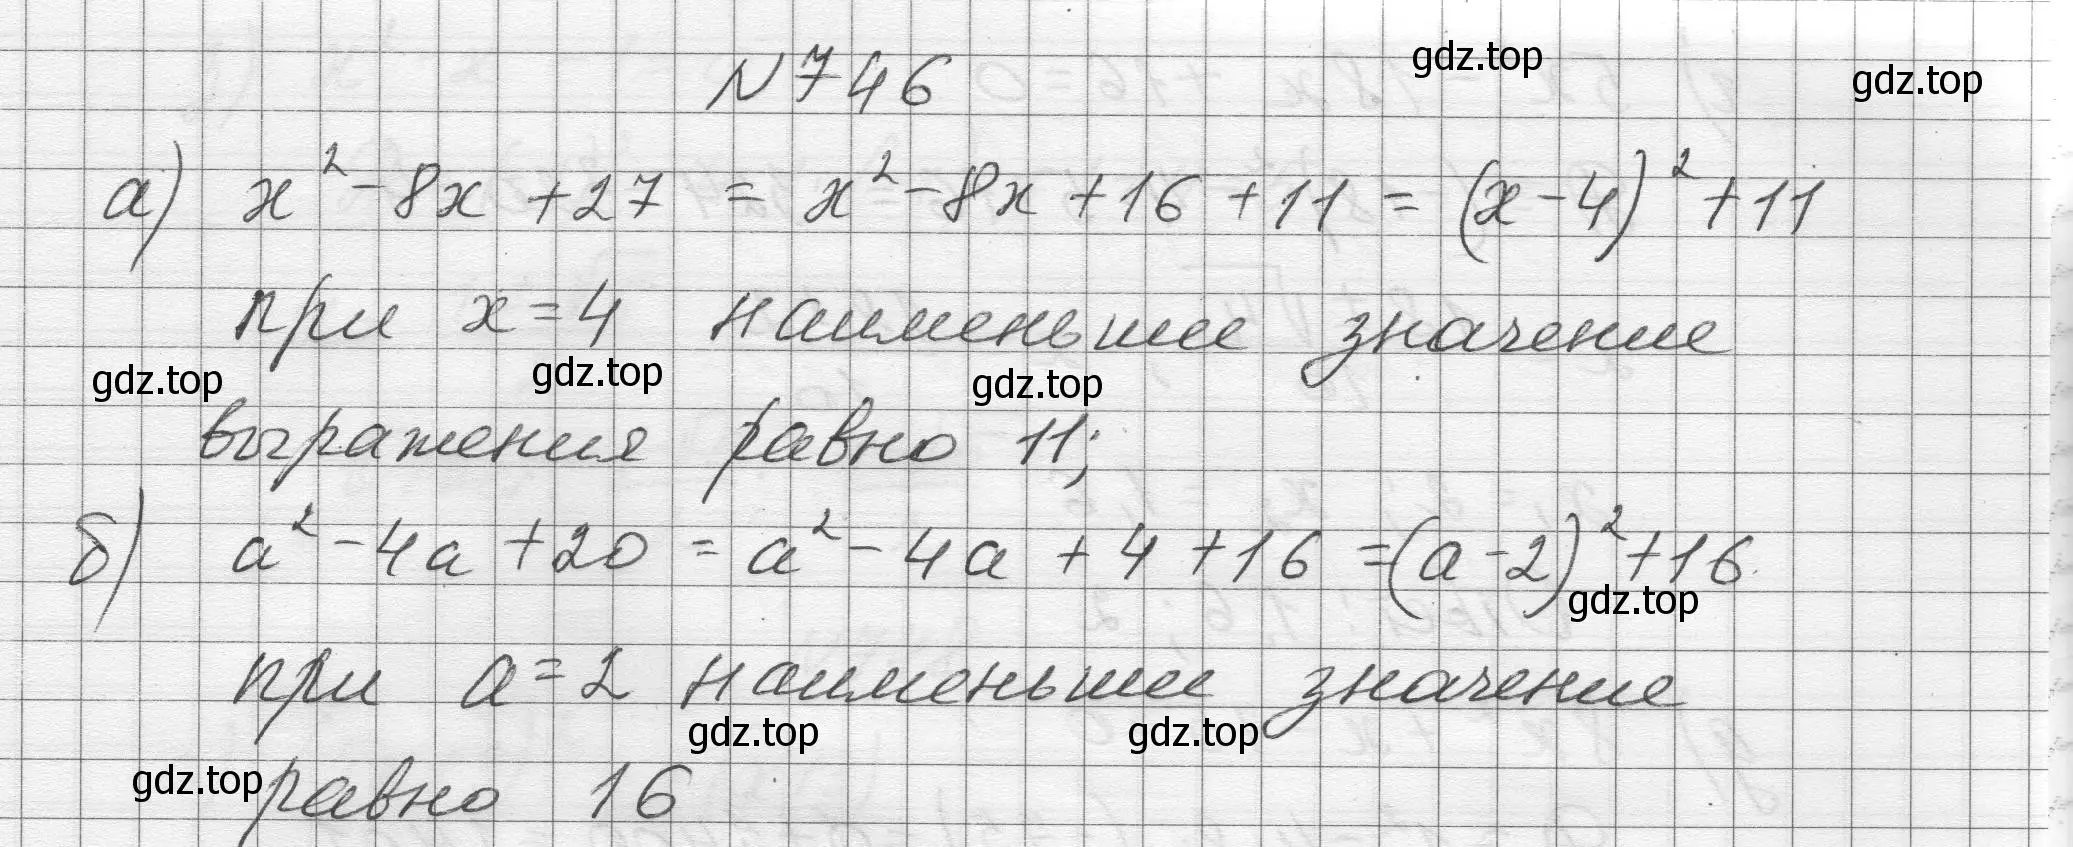 N 746
gdz.top
gdz.top
а) x² - 8x + 27 = x² - 8x + 16 + 11 = (x - 4)² + 11
при x = 4 наименьшее значение
gdz.top
gdz.top
gdz.top
выражения равно 11;
б) a² - 4a + 20 = a² - 4a + 4 + 16 = (a - 2)² + 16
gdz.top
при a = 2 наименьшее значение
gdz.top
gdz.top
gdz.top
равно 16